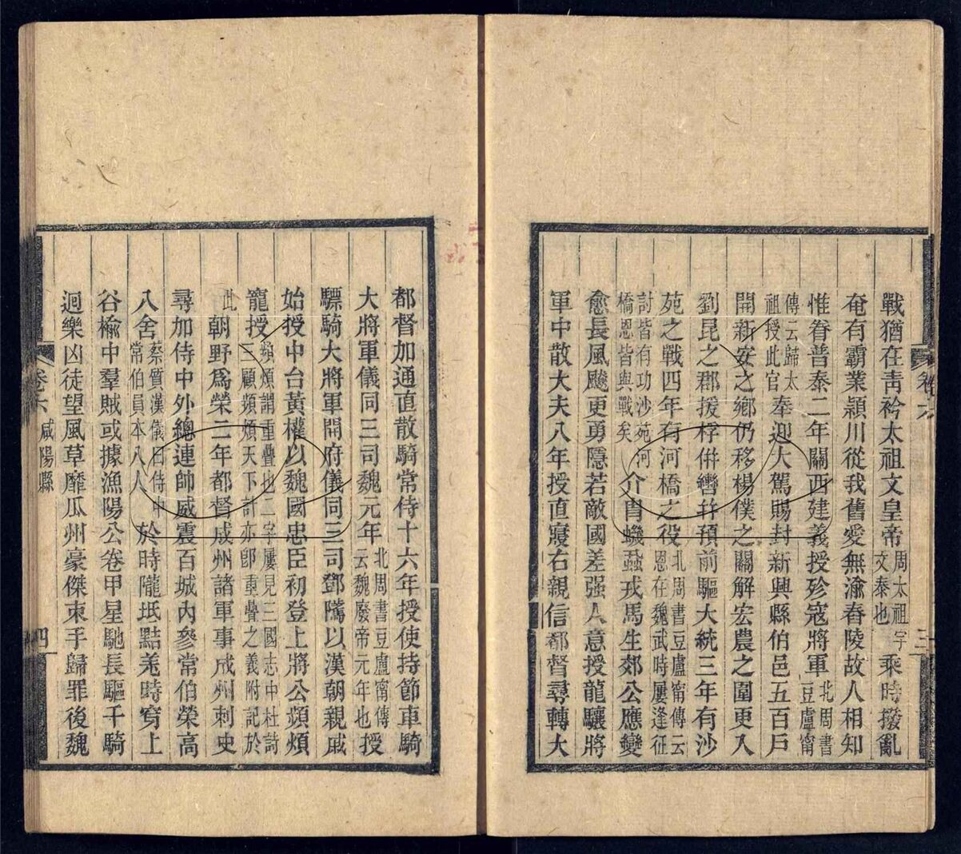 戰猶在靑衿太祖文皇帝周太祖字文泰也乘時撥亂
奄有霸業潁川從我舊愛無渝舂陵故人相知
惟眷普泰二年關西建義授殄寇將軍北周書豆盧甯
傳云歸太祖授此官奉迎大駕賜封新興縣伯邑五百戶
開新安之鄉仍移楊僕之關解宏農之圍更入
劉昆之郡援桴倂轡幷預前驅大統三年有沙
苑之戰四年有河橋之役北周書豆盧甯傳云恩在魏武時屢逢征
討皆有功沙苑河橋恩皆與戰矣介胄蟣蝨戎馬生郊公應變
愈長風飈更勇隱若敵國差强人意授龍驤將
軍中散大夫八年授直寢右親信都督尋轉大
三
卷六
都督加通直散騎常侍十六年授使持節車騎
大將軍儀同三司魏元年北周書豆盧甯傳云魏廢帝元年也授
驃騎大將軍開府儀同三司鄧隲以漢朝親戚
始授中台黃權以魏國忠臣初登上將公頻煩
寵授頻煩謂重疊也二字屢見三國志中杜詩三顧頻煩天下計亦卽重疊之義附記於
此朝野爲榮二年都督成州諸軍事成州刺史
尋加侍中外總連帥威震百城內參常伯榮高
八舍蔡質漢儀曰侍中常伯員本八人於時隴坻黠羌時穿上
谷楡中羣賊或據漁陽公卷甲星馳長驅千騎
迴樂凶徒望風草靡瓜州豪傑束手歸罪後魏
卷六 咸陽縣
四